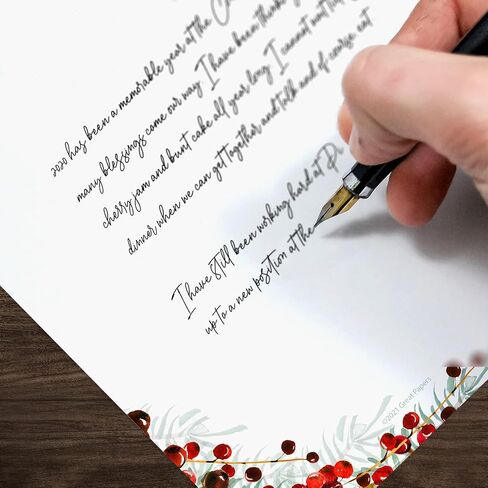 2020 has been a memorable year at the
many blessings come our way I have been
cherry jam and bunt cake all year long I cannot wait
dinner when we can get together and talk and of course eat
I have still been working hard at
up to a new position at the
©2021 Great Papers